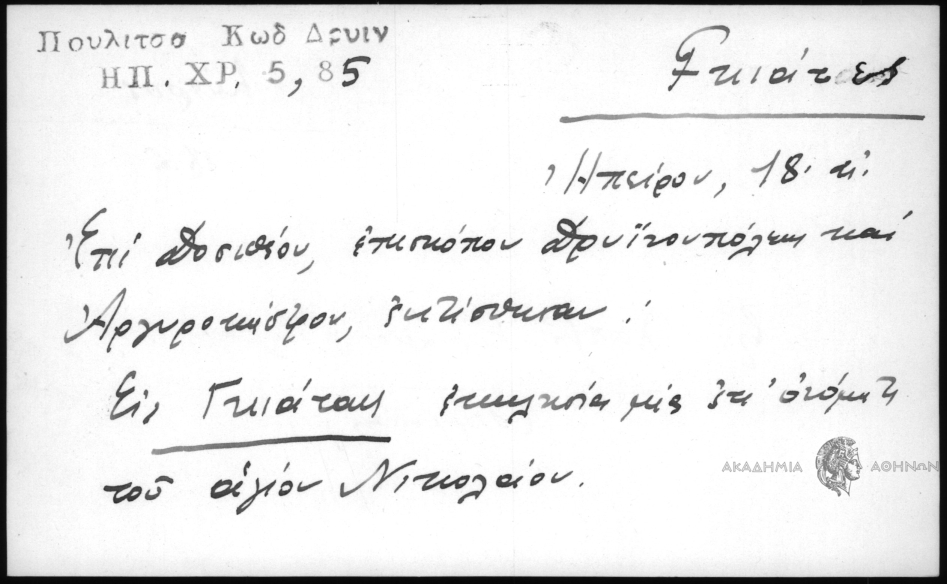 Πουλιτσα Κωδ Δρυιν
ΗΠ. ΧΡ. 5, 85
Γκιάτες
Ἠπείρου, 18.
Ἐπὶ Δοσιθέου, ἐπισκόπου Δρυϊνουπόλεως καὶ
Ἀργυροκάστρου, ἐκτίσθησαν:
Εἰς Γκιάτας ἐκκλησία μία ἐπ' ὀνόματι
τοῦ ἁγίου Νικολάου.
ΑΚΑΔΗΜΙΑ ΑΘΗΝΩΝ